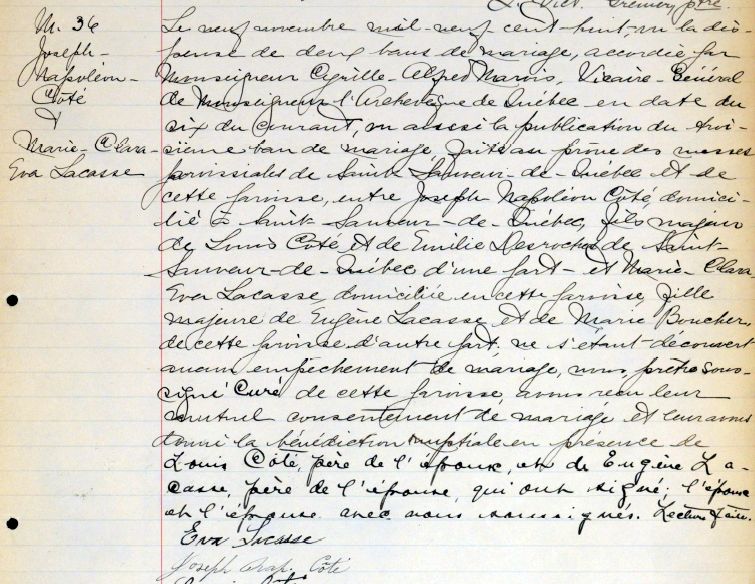 M. 36
Joseph-
Napoléon-
Côté
&
Marie-Clara-
Eva Lacasse
Le neuf novembre mil-neuf cent-huit, vu la dis-
pense de deux bans de mariage, accordée par
Monseigneur Cyrille-Alfred Marois, Vicaire-Général
de Monseigneur l'Archevêque de Québec en date du
six du courant, vu aussi la publication du troi-
sième ban de mariage faite au prône des messes
paroissiales de Saint-Sauveur-de-Québec et de
cette paroisse, entre Joseph Napoléon Côté, domici-
lié à Saint-Sauveur-de-Québec, fils majeur
de Louis Coté et de Emilie Desroches de Saint-
Sauveur-de-Québec d'une part - et Marie-Clara
Eva Lacasse domiciliée en cette paroisse, fille
majeure de Eugène Lacasse et de Marie Boucher,
de cette paroisse d'autre part; ne s'étant découvert
aucun empêchement de mariage, nous, prêtre sous-
signé Curé de cette paroisse, avons reçu leur
mutuel consentement de mariage et leur avons
donné la bénédiction nuptiale en présence de
Louis Côté, père de l'époux, et de Eugène La-
casse, père de l'épouse, qui ont signé; l'époux
et l'épouse avec nous soussignés. Lecture faite.
Eva Lacasse
Joseph Nap. Côté